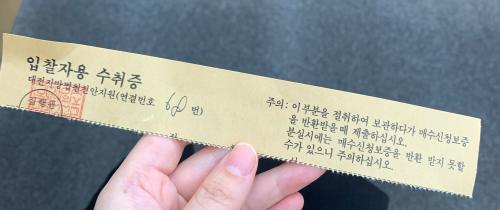 입찰자용 수취증
대전지방법원천안지원(연결번호 60 번)
집행관
주의: 이부분을 절취하여 보관하다가 매수신청보증
을 반환받을때 제출하십시오.
분실시에는 매수신청보증을 반환 받지 못할
수가 있으니 주의하십시오.